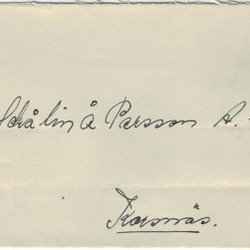 Schålin å Parsson A.
Korsnäs.